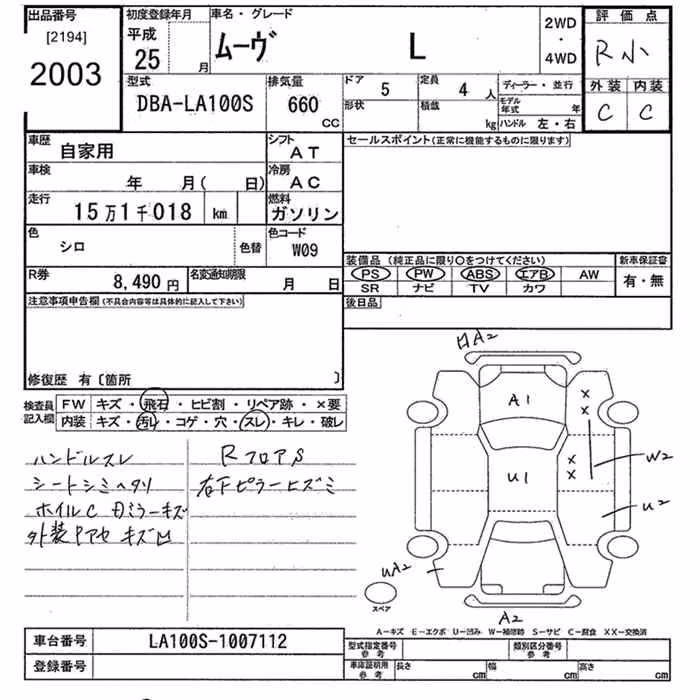 出品番号
[2194]
2003
初度登録年月
平成
25 月
車名・グレード
ムーヴ L
2WD
・
4WD
評価点
R小
外装 内装
C C
型式
DBA-LA100S
排気量
660
CC
ドア 5
定員 4 人
形状
積載 kg
ディーラー・並行
モデル年式 年
ハンドル 左・右
車歴
自家用
シフト
AT
車検
年 月( 日)
冷房
AC
走行
15万1千018 km
燃料
ガソリン
色
シロ
色替
色コード
W09
R券
8,490円
名変通知期限
月 日
セールスポイント(正常に機能するものに限ります)
装備品(純正品に限り○をつけてください)
PS PW ABS エアB AW
SR ナビ TV カワ
新車保証書
有・無
後日品
注意事項申告欄(不具合内容等は具体的に記入して下さい)
修復歴 有〔箇所 〕
検査員記入欄
FW キズ・飛石・ヒビ割・リペア跡・×要
内装 キズ・汚レ・コゲ・穴・スレ・キレ・破レ
ハンドルスレ
シートシミヘタリ
ホイルC 毋ミラーキズ
外装Pアセ キズ凹
RフロアS
右下ピラーヒズミ
A2
A1
×
×
×
×
U1
W2
U2
UA2
A2
スペア
A-キズ E-エクボ U-凹み W-補修跡 S-サビ C-腐食 XX-交換済
車台番号
LA100S-1007112
登録番号
型式指定番号
参考
類別区分番号
参考
車庫証明用
参考
長さ cm
幅 cm
高さ cm